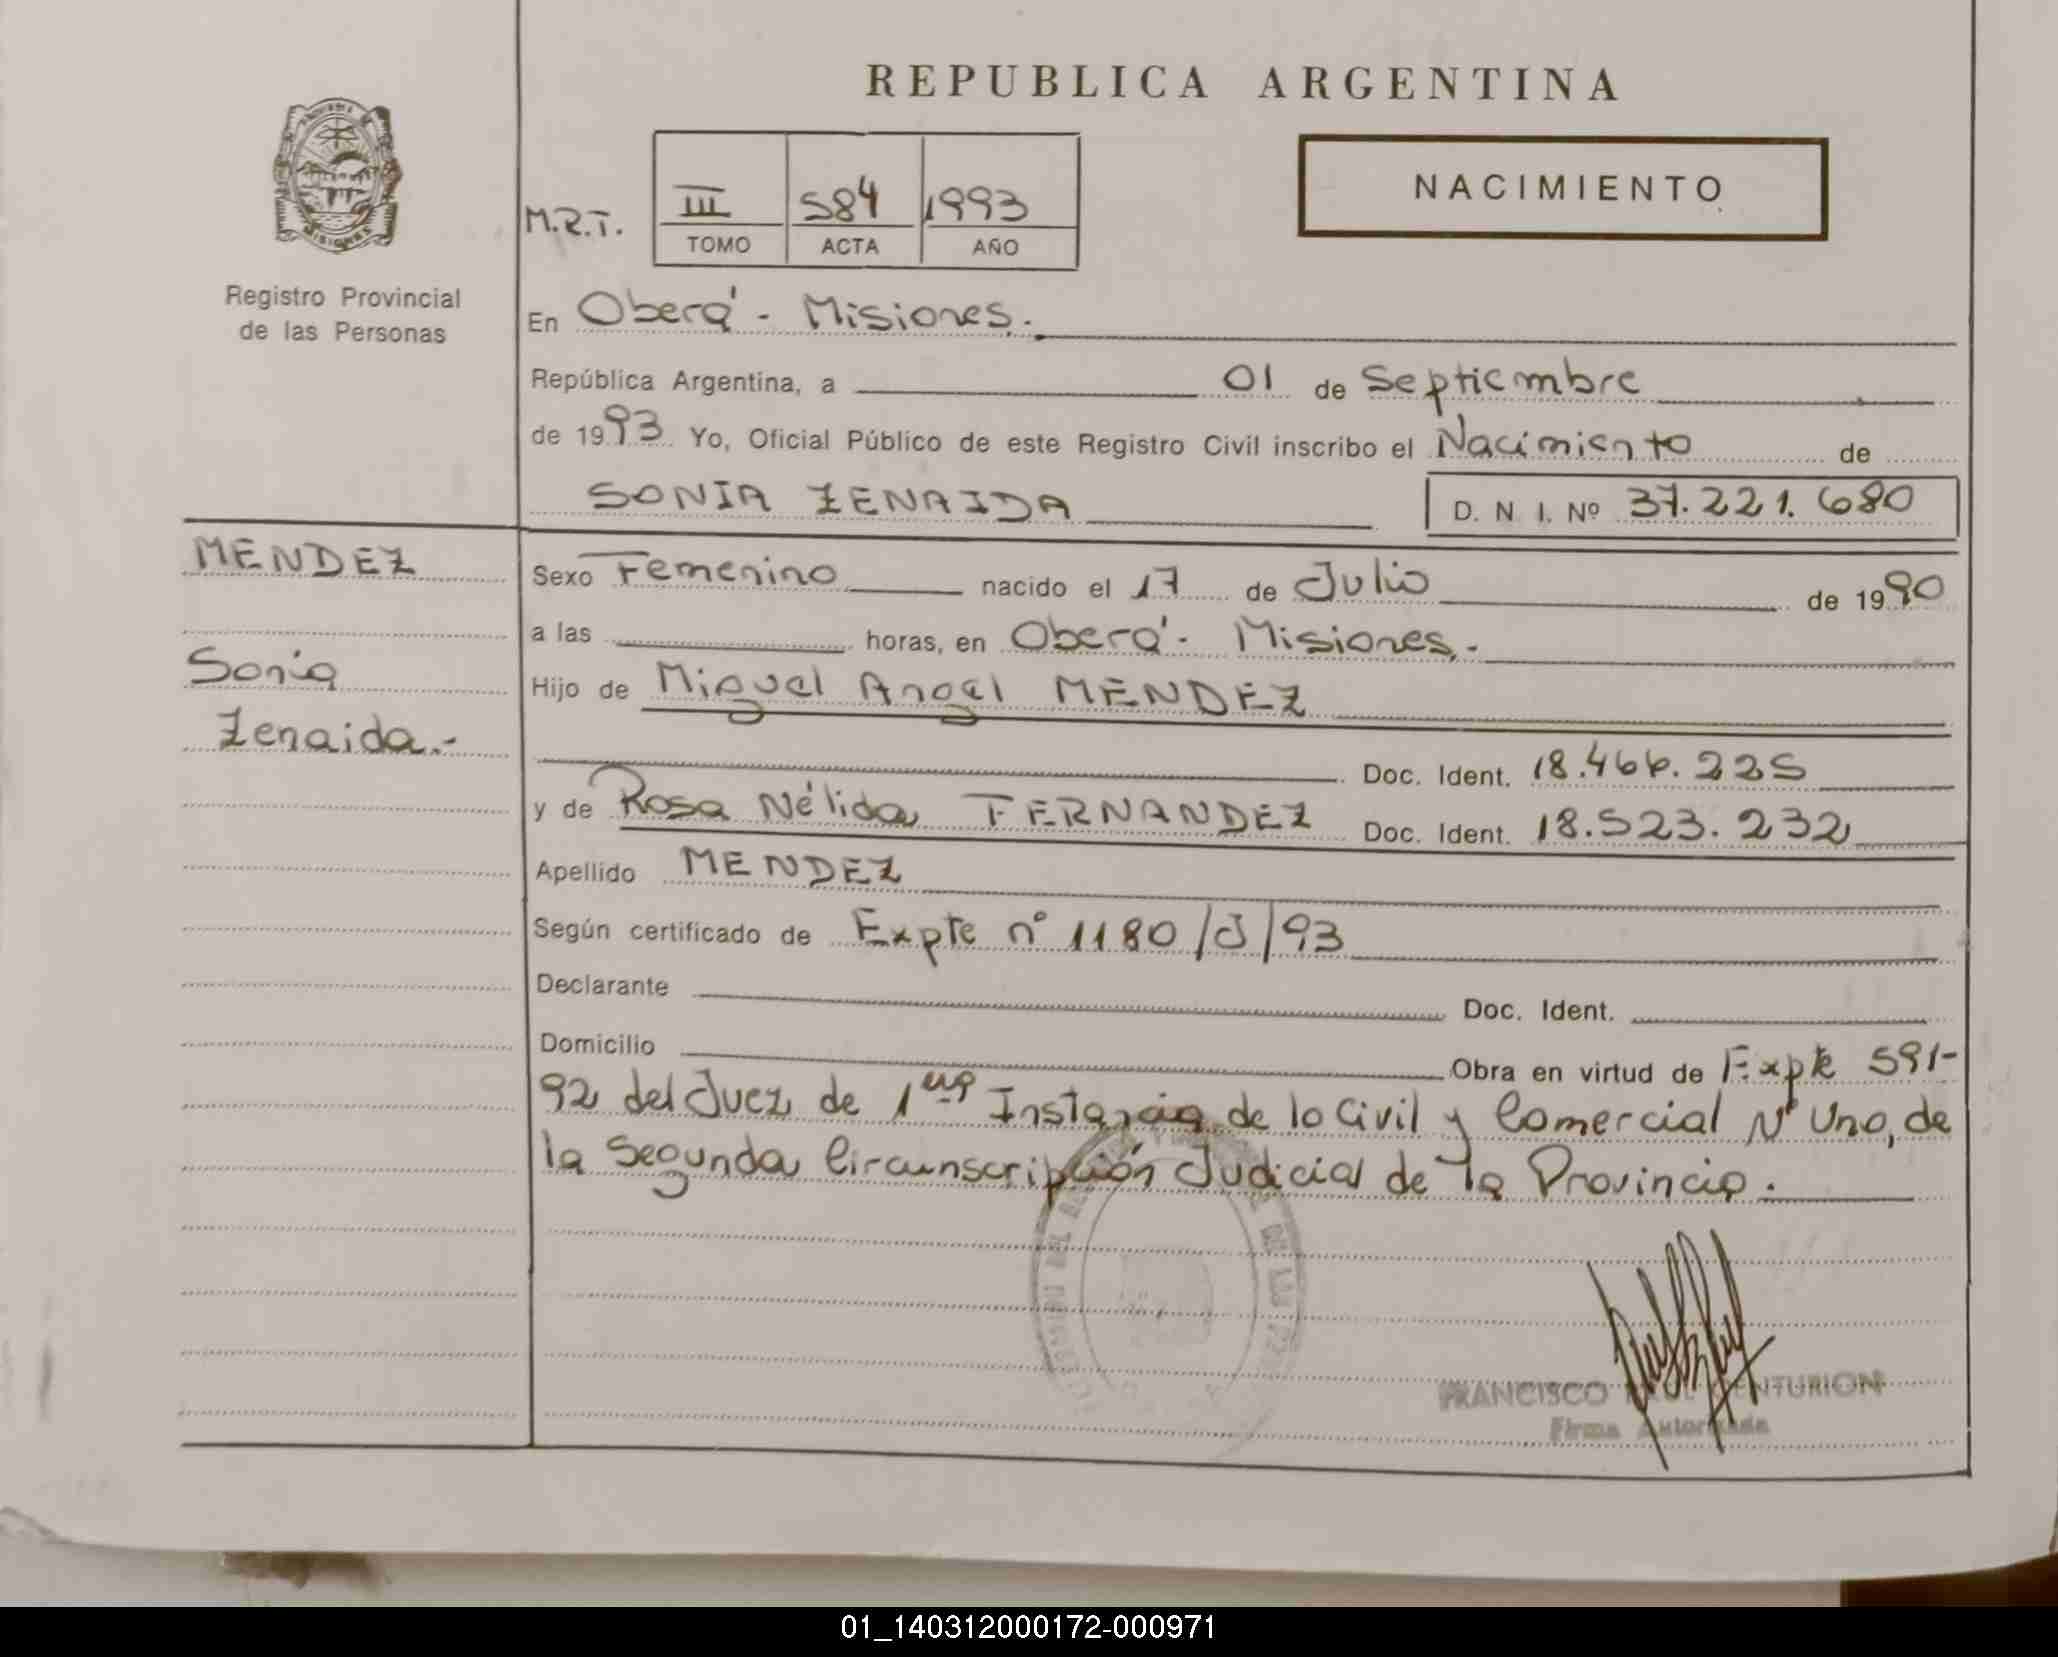 REPUBLICA ARGENTINA
NACIMIENTO
M.R.T.
III 584 1993
TOMO ACTA AÑO
Registro Provincial
de las Personas
En Oberá - Misiones.
República Argentina, a 01 de Septiembre
de 1993 Yo, Oficial Público de este Registro Civil inscribo el Nacimiento de
SONIA ZENAIDA D. N. I. Nº 37.221.680
MENDEZ
Sonia
Zenaida.-
Sexo Femenino nacido el 17 de Julio de 1990
a las horas, en Oberá - Misiones.-
Hijo de Miguel Angel MENDEZ
Doc. Ident. 18.466.225
y de Rosa Nélida FERNANDEZ Doc. Ident. 18.523.232
Apellido MENDEZ
Según certificado de Expte nº 1180/J/93
Declarante Doc. Ident.
Domicilio Obra en virtud de Expte 591-
92 del Juez de 1era Instancia de lo Civil y Comercial Nº Uno, de
la Segunda Circunscripción Judicial de la Provincia.
FRANCISCO RAUL CENTURION
Firma Autorizada
01_140312000172-000971